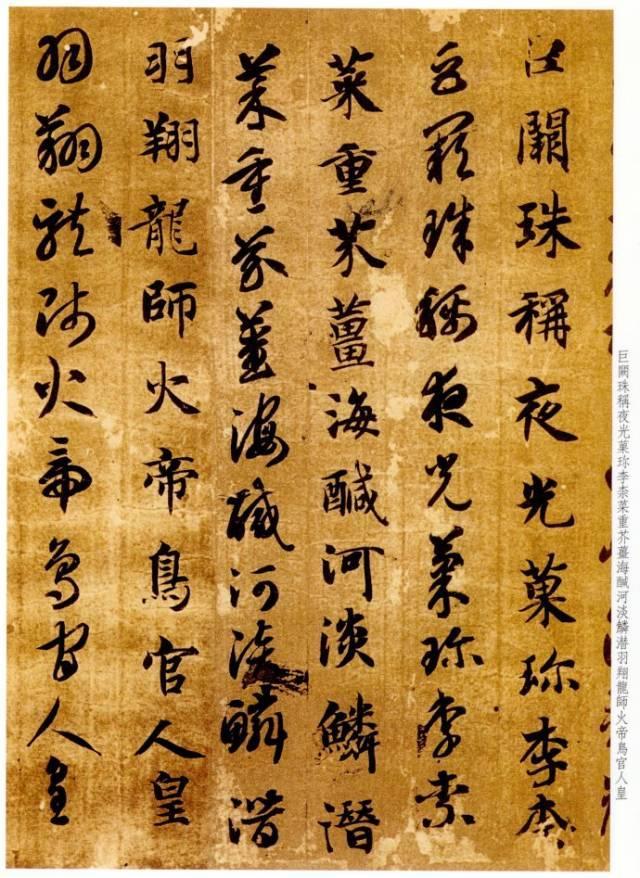 巨闕珠稱夜光菓珎李柰菜重芥薑海醎河淡鱗潜羽翔龍師火帝鳥官人皇
巨闕珠稱夜光菓珎李柰
巨闕珠稱夜光菓珎李柰
菜重芥薑海醎河淡鱗潛
菜重芥薑海醎河淡鱗潛
羽翔龍師火帝鳥官人皇
羽翔龍師火帝鳥官人皇